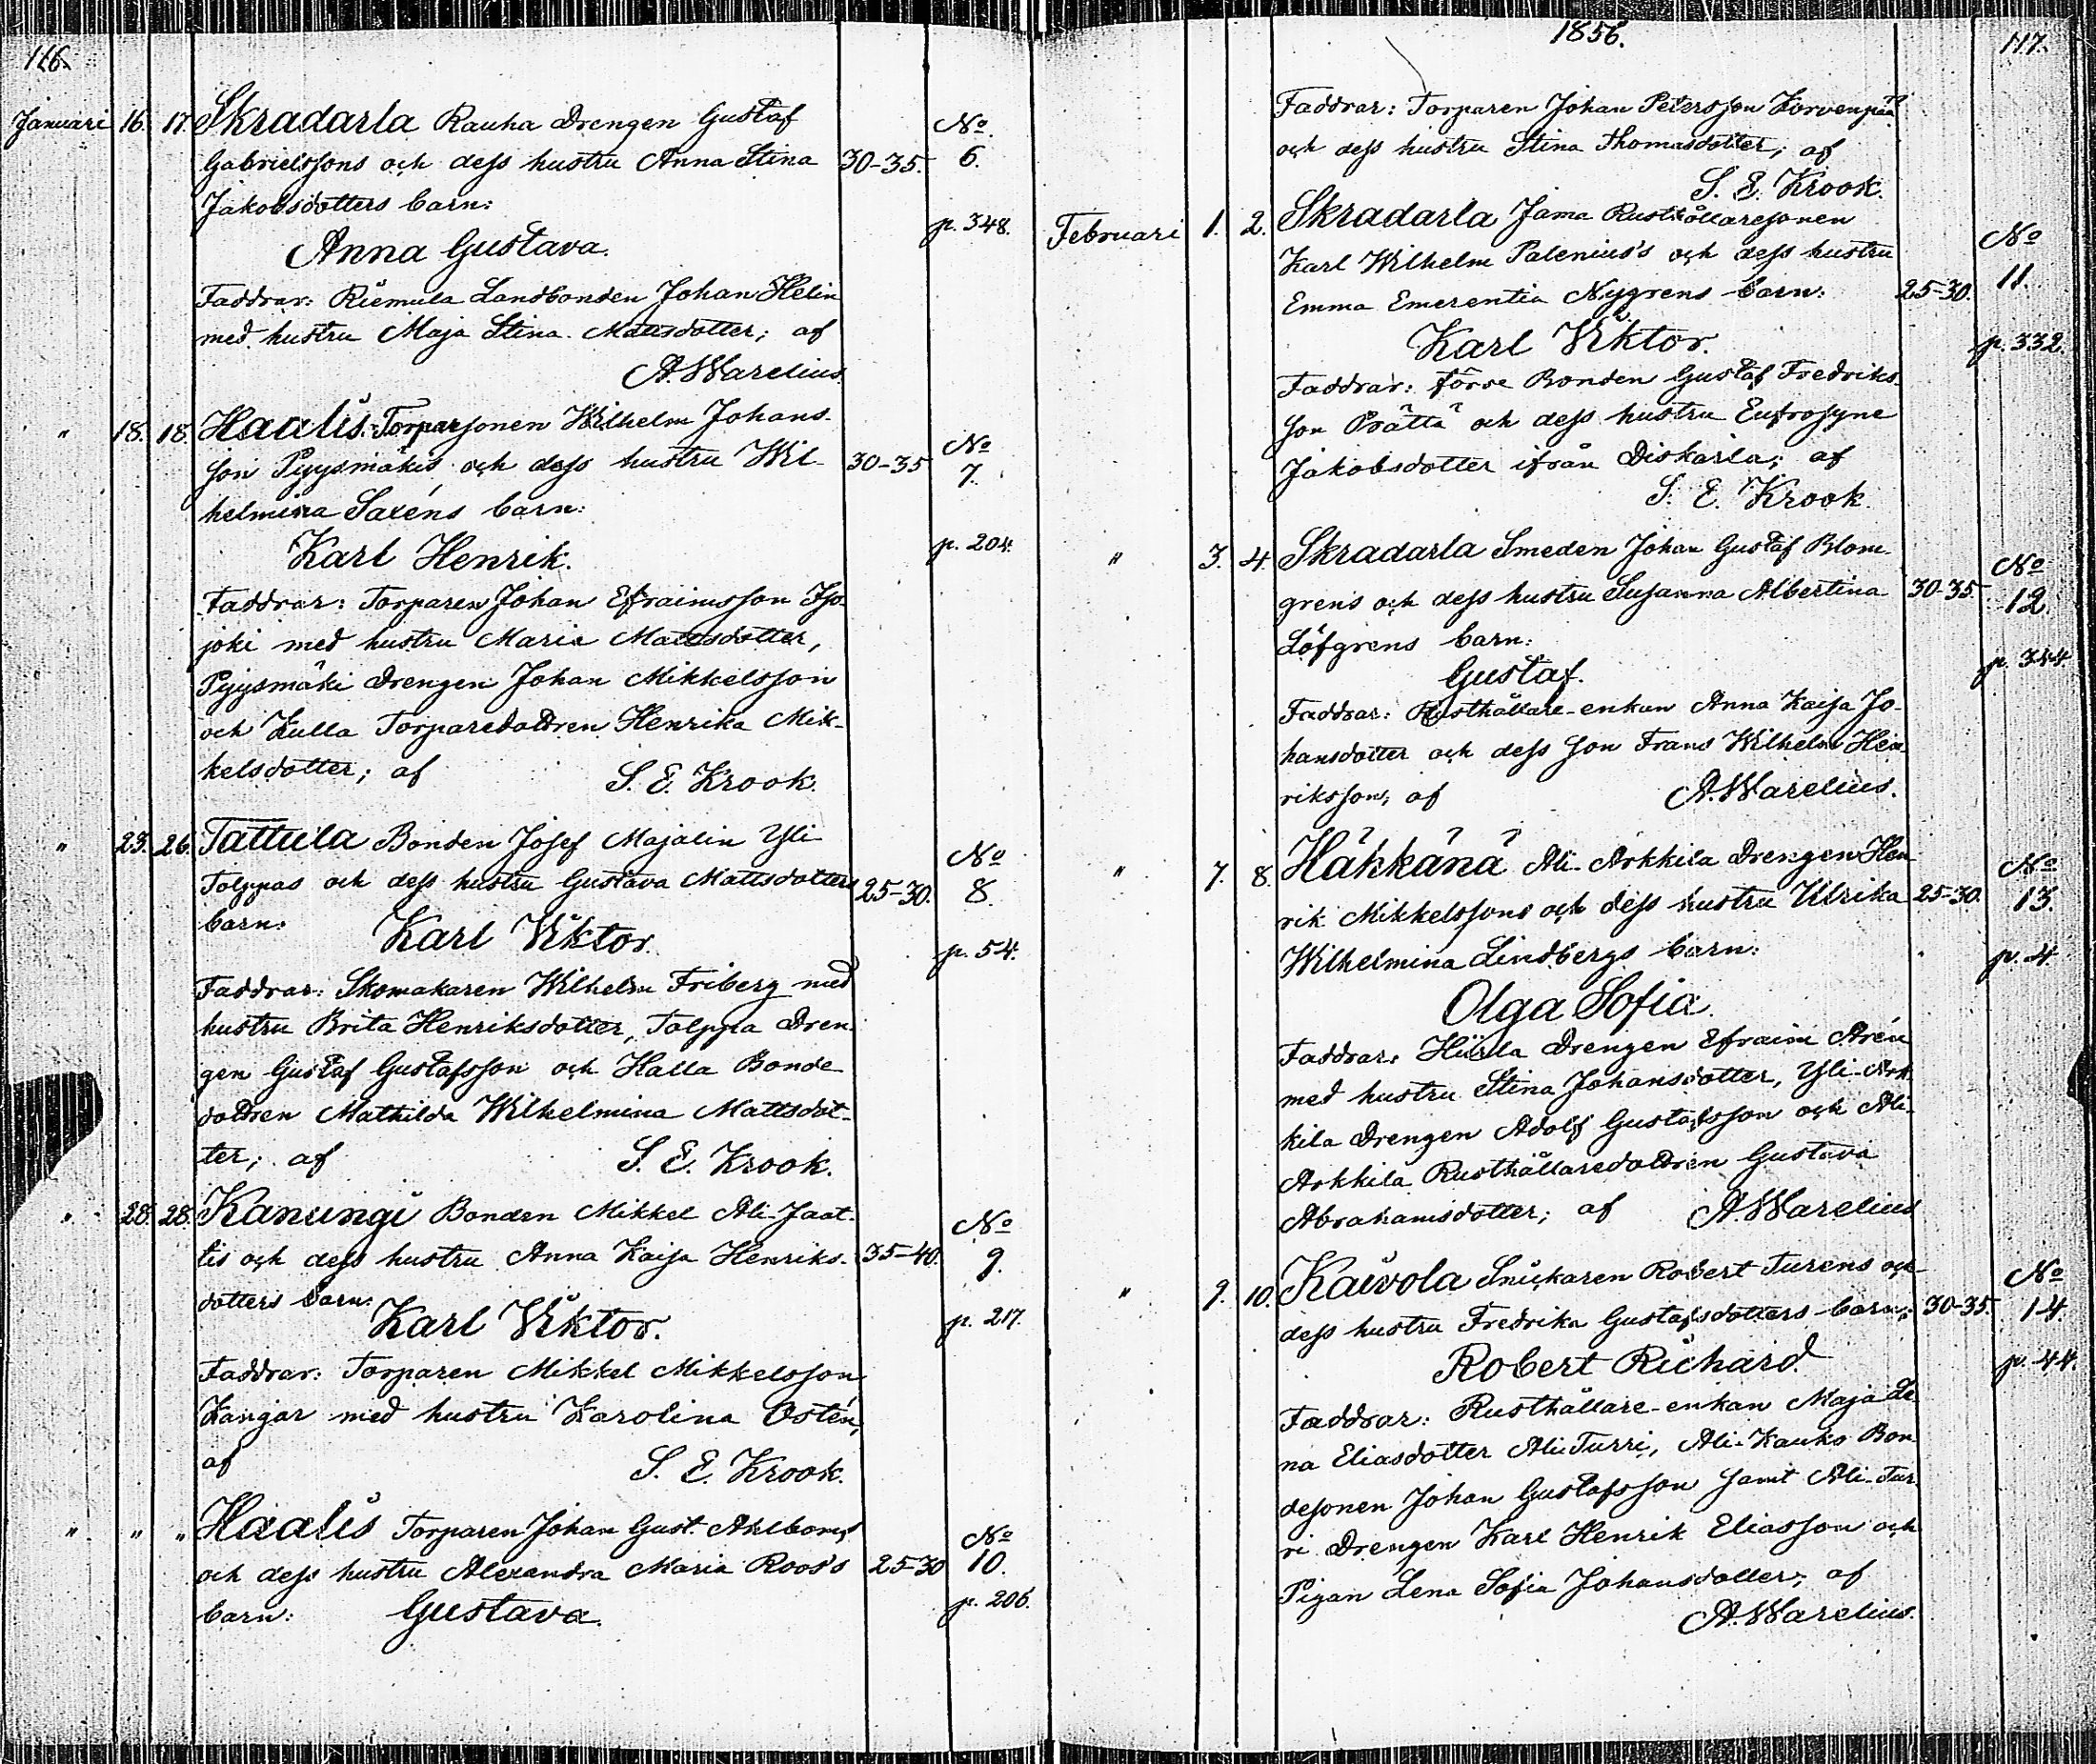 116.
Januari 16. 17. Skradarla Rauha Drengen Gustaf
Gabrielssons och dess hustru Anna Stina 30-35. No. 6.
Jakobsdotters barn: p. 348.
Anna Gustava.
Faddrar: Riemula Landbonden Johan Helin
med hustru Maja Stina Mattsdotter; af
A. Warelius.
" 18. 18. Haalis Torparsonen Wilhelm Johans-
son Pyysmäkis och dess hustru Wil- 30-35 No 7.
helmina Saxéns barn:
Karl Henrik. p. 204.
Faddrar: Torparen Johan Efraimsson Iso-
joki med hustru Maria Mattsdotter,
Pyysmäki Drengen Johan Mikkelsson
och Kulla Torparedottren Henrika Mik-
kelsdotter; af S. E. Krook.
" 23. 26. Tattula Bonden Josef Majalin Yli
Tolppas och dess hustru Gustava Mattsdotters 25-30. No 8.
barn: Karl Viktor. p. 54.
Faddrar: Skomakaren Wilhelm Friberg med
hustru Brita Henriksdotter, Tolppa Dren-
gen Gustaf Gustafsson och Halla Bonde-
dottren Mathilda Wilhelmina Mattsdot-
ter; af S. E. Krook.
" 28. 28. Kanungi Bonden Mikkel Ali-Jaat-
tis och dess hustru Anna Kaisa Henriks- 35-40. No 9.
dotters barn:
Karl Viktor. p. 217.
Faddrar: Torparen Mikkel Mikkelsson
Kangar med hustru Karolina Ostén,
af S. E. Krook.
" " " Haalis Torparen Johan Gust. Ahlboms
och dess hustru Alexandra Maria Roos's 25-30 No 10.
barn: Gustava. p. 206.
1856. 117.
Faddrar: Torparen Johan Petersson Korvenpää
och dess hustru Stina Thomasdotter; af
S. E. Krook.
Februari 1. 2. Skradarla Jama Rusthållaresonen
Karl Wilhelm Palenius's och dess hustru No
Emma Emerentia Nygrens barn: 25-30. 11.
Karl Viktor. p. 332.
Faddrar: förre Bonden Gustaf Fredriks-
son Prättä och dess hustru Eufrosyne
Jakobsdotter ifrån Diskarla; af
S. E. Krook.
" 3. 4. Skradarla Smeden Johan Gustaf Blom-
grens och dess hustru Susanna Albertina 30-35. No 12.
Löfgrens barn:
Gustaf. p. 344
Faddrar: Rusthållare-enkan Anna Kaisa Jo-
hansdotter och dess son Frans Wilhelm Hen-
riksson, af A. Warelius.
" 7. 8. Häkkänä Ali-Arkkila Drengen Hen-
rik Mikkelssons och dess hustru Ulrika 25-30. No 13.
Wilhelmina Lindbergs barn: p. 4
Olga Sofia.
Faddrar: Hiirla Drengen Efraim Arén
med hustru Stina Johansdotter, Yli-Ark-
kila Drengen Adolf Gustafsson och Ali-
Arkkila Rusthållaredottren Gustava
Abrahamsdotter; af A. Warelius
" 9. 10. Kaivola Snickaren Robert Turens och
dess hustru Fredrika Gustafsdotters barn: 30-35. No 14.
Robert Richard. p. 44.
Faddrar: Rusthållare-enkan Maja Le-
na Eliasdotter Ali-Turri, Ali-Kauko Bon-
desonen Johan Gustafsson samt Ali-Tur-
ri Drengen Karl Henrik Eliasson och
Pigan Lena Sofia Johansdotter; af
A. Warelius.